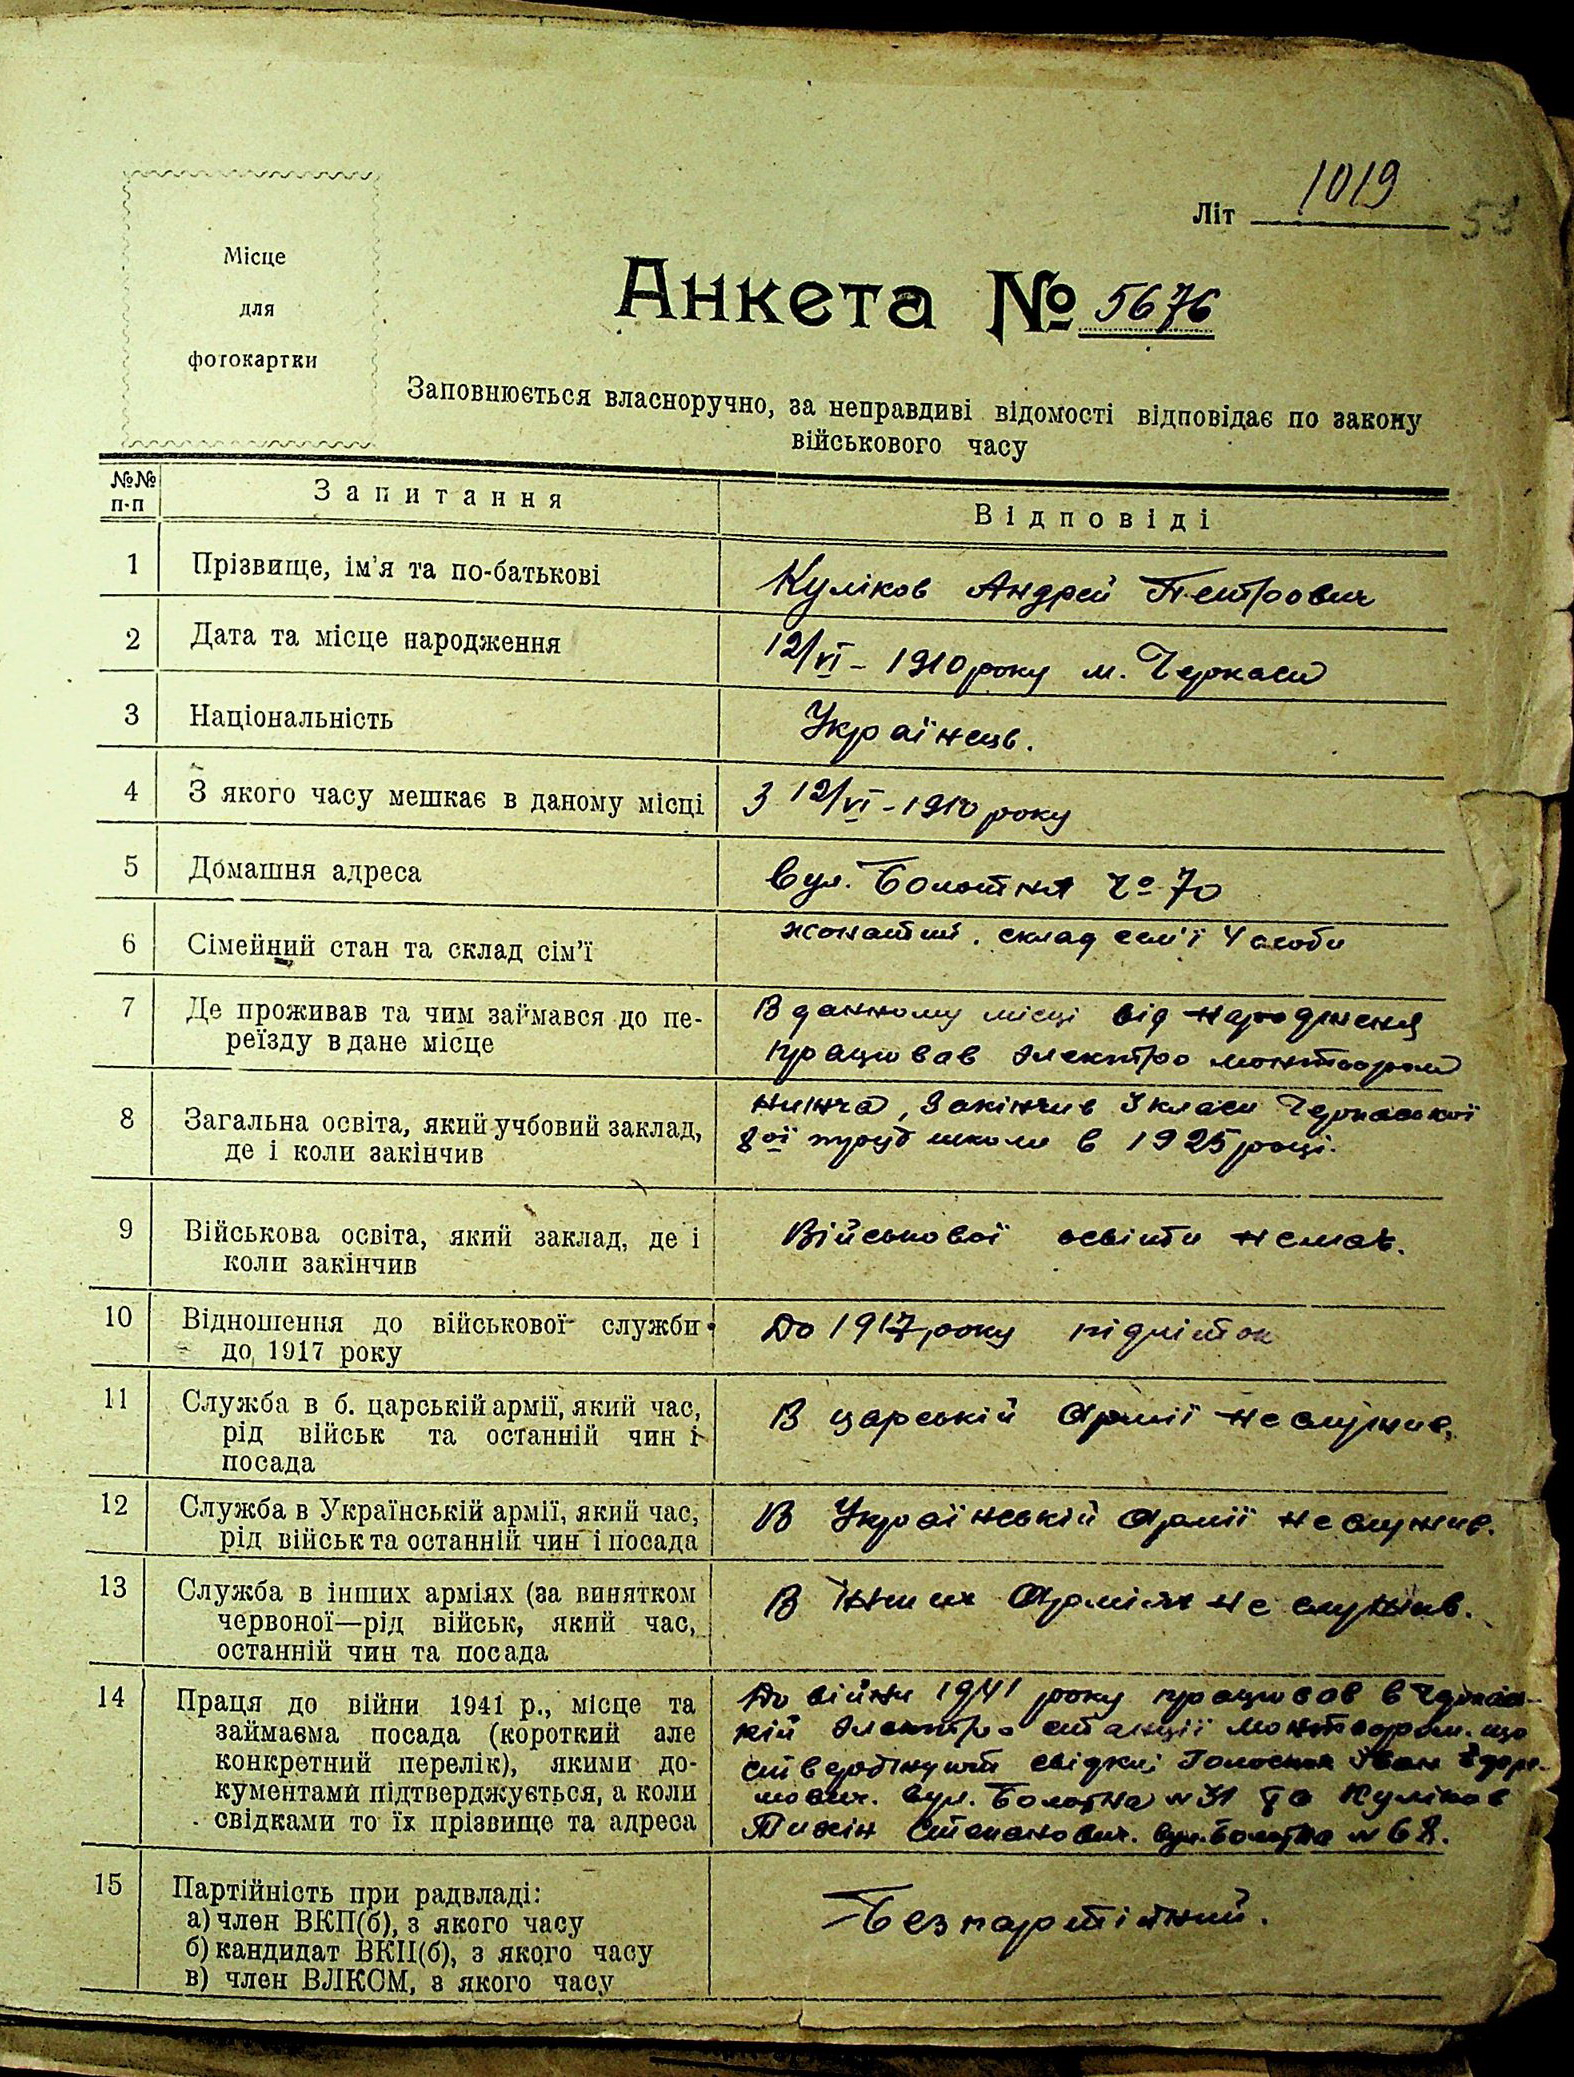 Літ 1019
53
Місце
для
фотокартки
Анкета № 5676
Заповнюється власноручно, за неправдиві відомості відповідає по закону
військового часу
№№
п-п
Запитання
Відповіді
1 Прізвище, ім'я та по-батькові
Куліков Андрей Петрович
2 Дата та місце народження
12/VI – 1910 року м. Черкаси
3 Національність
Українець.
4 З якого часу мешкає в даному місці
З 12/VI – 1910 року
5 Домашня адреса
вул. Болотня 70
6 Сімейний стан та склад сім'ї
жонатий. склад сем'ї 4 особи
7 Де проживав та чим займався до пе-
реїзду в дане місце
В данному місці від народження
працював електро монтьором
8 Загальна освіта, який учбовий заклад,
де і коли закінчив
нижча, Закінчив 3 класи Черкаської
труд школи в 1925 році.
9 Військова освіта, який заклад, де і
коли закінчив
Військової освіти немає.
10 Відношення до військової служби
до 1917 року
До 1917 року підліток
11 Служба в б. царській армії, який час,
рід військ та останній чин і
посада
В царській армії не служив.
12 Служба в Українській армії, який час,
рід військ та останній чин і посада
В Українській армії не служив.
13 Служба в інших арміях (за винятком
червоної—рід військ, який час,
останній чин та посада
В інших арміях не служив.
14 Праця до війни 1941 р., місце та
займаєма посада (короткий але
конкретний перелік), якими до-
кументами підтверджується, а коли
свідками то їх прізвище та адреса
До війни 1941 року працював в Черкась-
кій электро станції монтьором. що
свідки Іван
вул. Болотна № 31 та Куліков
Тихін Степанович. вул. Болотна № 68.
15 Партійність при радвладі:
а) член ВКП(б), з якого часу
б) кандидат ВКП(б), з якого часу
в) член ВЛКСМ, з якого часу
Безпартійний.